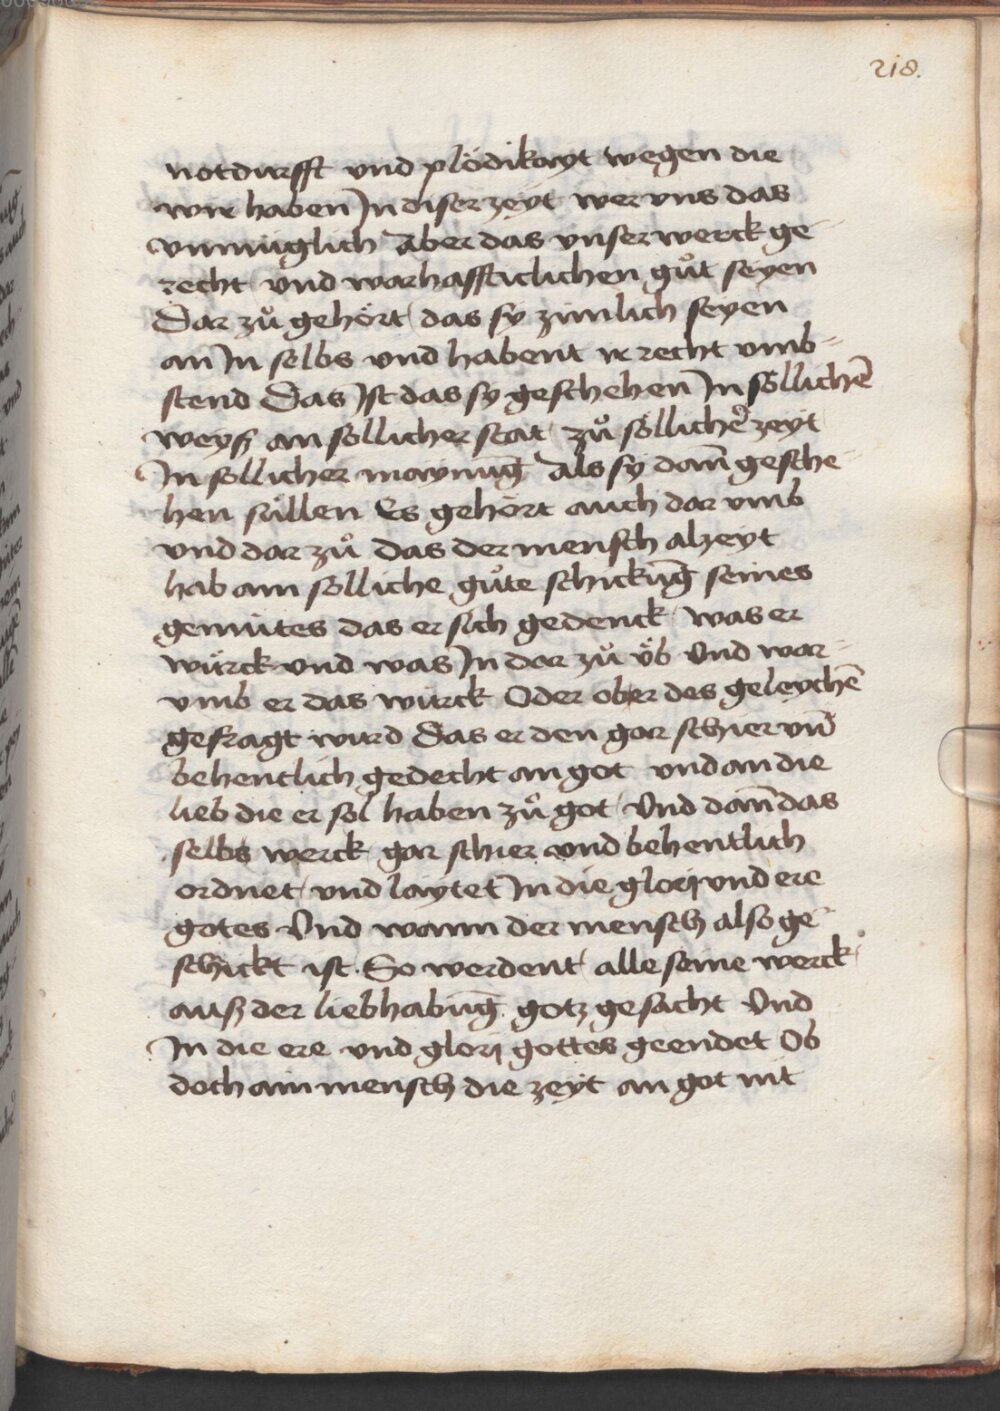 218.
notdurfft vnd plödikayt wegen die
wir haben In diser zeyt wer vns das
vnmüglich Aber das vnser werck ge-
recht vnd warhaffticlichen gůt seyen
Dar zů gehört das sy zimlich seyen
an In selbs vnd habent ir recht vmb-
stend Das Ist das sy geschehen In söllichē
weyß an söllicher stat zů söllicher zeyt
In söllicher maynūg Als sy dan̄ gesche-
hen süllen Es gehört auch dar vmb
vnd dar zů das der mensch alzeyt
hab ain sölliche gůte schickūg seines
gemütes das er sich gedenck was er
würck vnd was In dar zů yͤb Vnd war-
vmb er das würck Oder ob er des geleychē
gefragt wurd Das er den gar schier vn̄
behentlich gedecht an got vnd an die
lieb die er sol haben zů got Vnd dan̄ das
selbs werck gar schier vnd behentlich
ordnet vnd laytet In die glorj vnd ere
gotes Vnd wann der mensch also ge-
schickt ist. So werdent alle seine werck
auß der liebhabūg gotz gesacht Vnd
In die ere vnd glorj gottes geendet Ob
doch ain mensch die zeyt an got nit